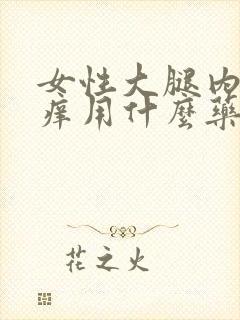 女性大腿内
痒用什麼藥
花之火